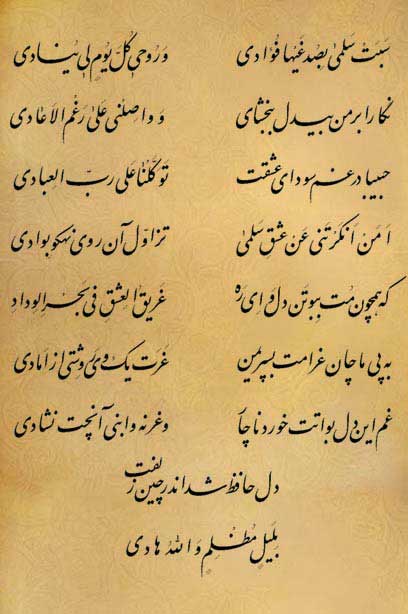 سَبَتْ سَلْمیٰ بِصُدْغَیْها فُؤادی وَ رُوحی کُلَّ یَوْمٍ لی یُنادی
نگارا بر من بیدل ببخشای و واصِلْنی عَلیٰ رَغْمِ الاَعادی
حبیبا در غم سودای عشقت تَوَکَّلْنا عَلیٰ رَبِّ العِبادی
اَمَنْ اَنْکَرْتَنی عَنْ عِشْقِ سَلْمیٰ تزاول آن روی نهکو بوادی
که همچون مت ببوتن دل و ای ره غَریقُ العِشْقِ فی بَحْرِ الوِدادِ
به پی ماچان غرامت بسپریمن غرت یک وی روشتی از امادی
غم این دل بواتت خورد ناچار وغرنه وابنی آنچت نشادی
دل حافظ شد اندر چین زلفت
بِلَیْلٍ مُظْلِمٍ وَ اللهُ هادی